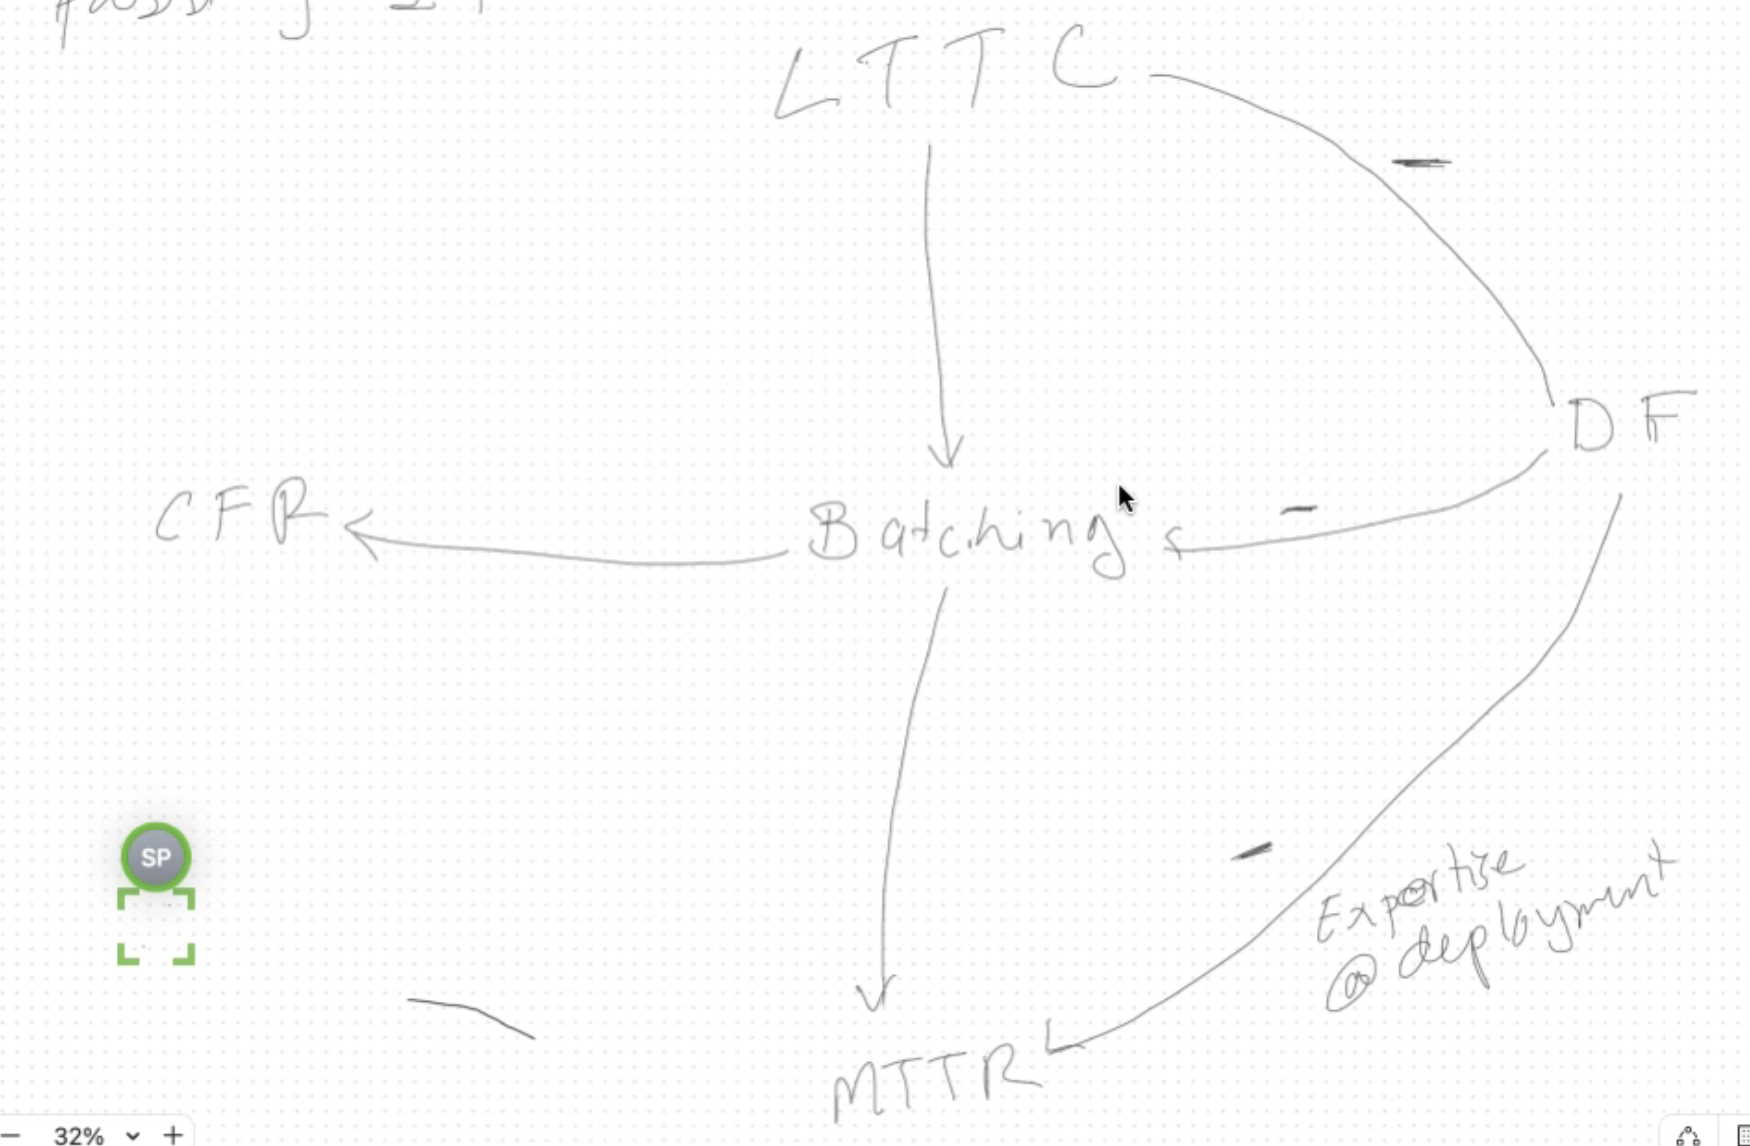 LTTC
DF
CFR
Batching
SP
Expertise
@ deployment
MTTR
32%